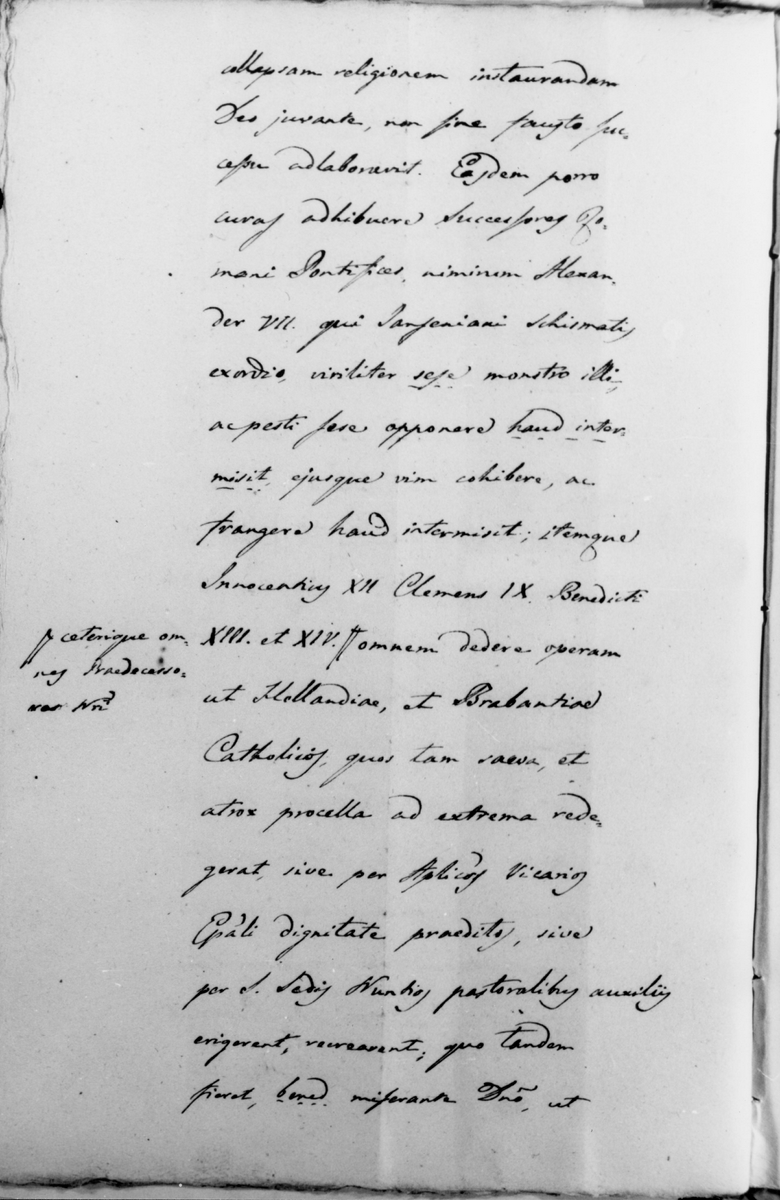 collapsam religionem instaurandam
Deo juvante, non sine fausto suc-
cessu adlaboravit. Easdem porro
curas adhibuere Successores Ro-
mani Pontifices, nimirum Alexan-
der VII. qui Janseniani Schismatis
exordio, viriliter sese monstro illi,
ac pesti sese opponere haud inter-
misit, ejusque vim cohibere, ac
frangere haud intermisit; itemque
Innocentius XII Clemens IX. Benedicti
XIII. et XIV. omnem dedere operam
ceterique om-
nes Praedecesso-
res Nri
ut Hollandiae, et Brabantiae
Catholicos, quos tam saeva, et
atrox procella ad extrema rede-
gerat, sive per Aplicos Vicarios
Epali dignitate praeditos, sive
per S. Sedis Nuntios pastoralibus auxiliis
erigerent, recrearent; quo tandem
fieret, bened miserante Dno, ut